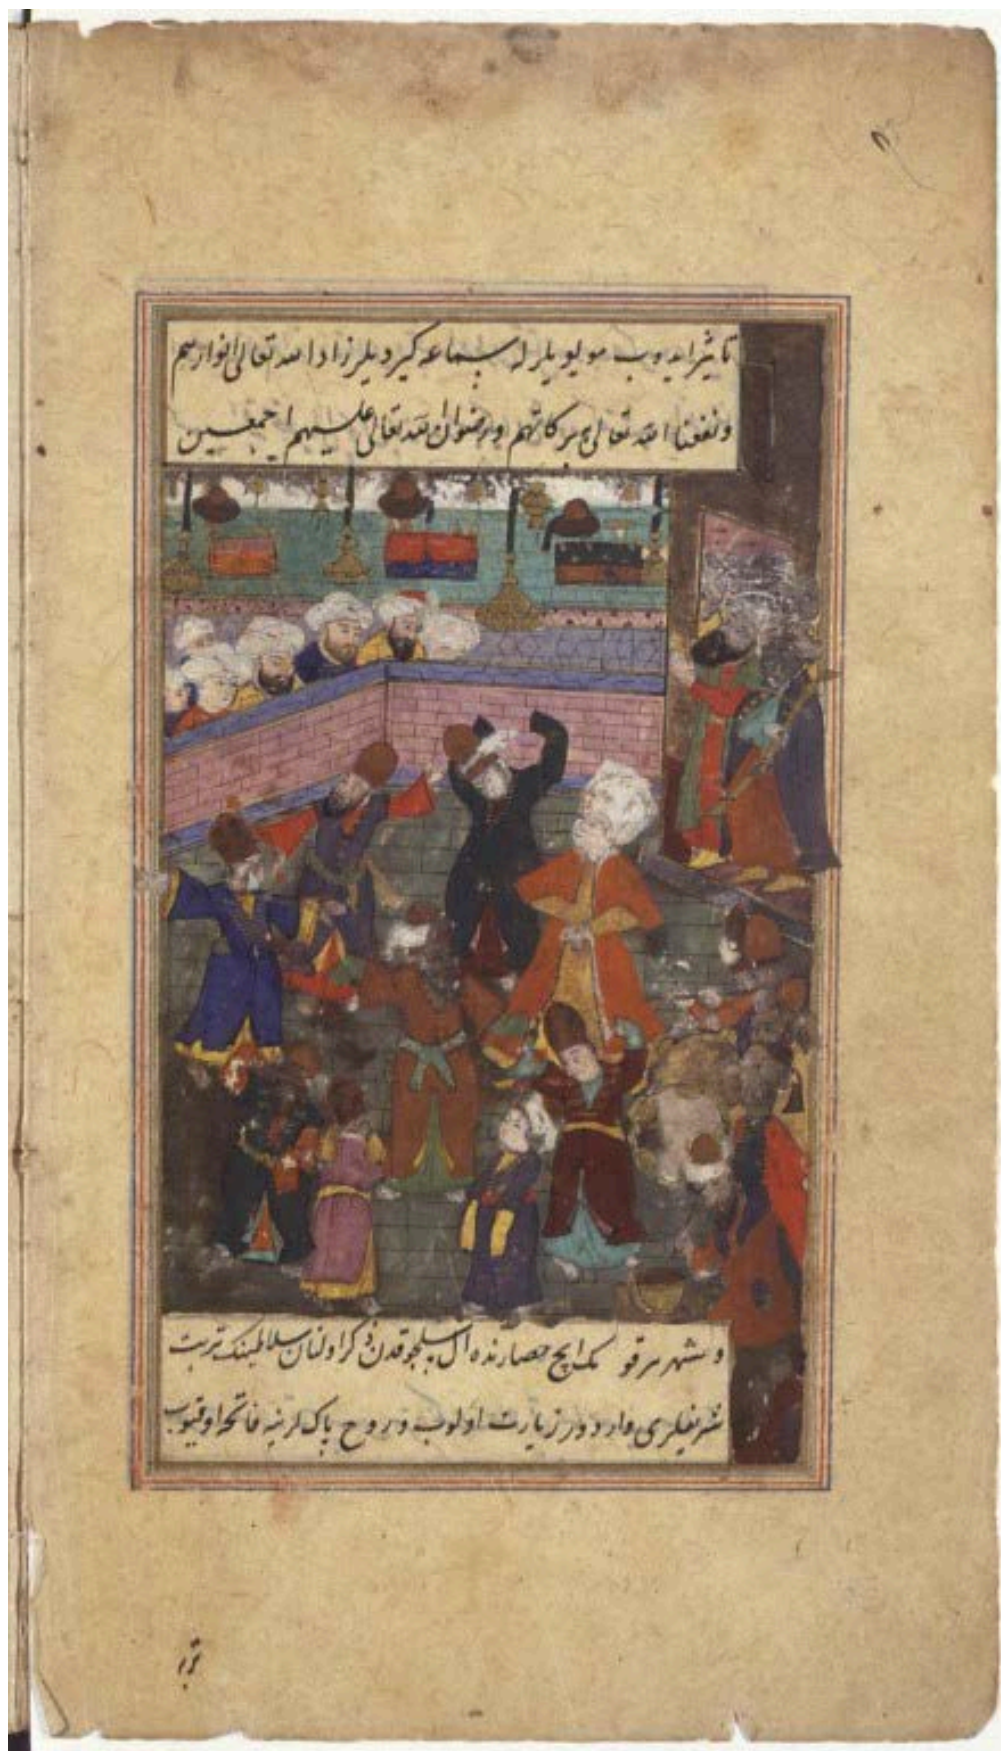 تاثیر ایدوب مولویلر له سماعه کیردیلر زاد الله تعالی انوارهم
ونفعنا الله تعالی ببرکاتهم ورضوان الله تعالی علیهم اجمعین
وشهر مرقو مک ایچ حصارنده آل سلجوقدن ذکر اولنان سلاطینک تربت
شریفلری واردور زیارت اولنوب وروح پاک لرینه فاتحه اوقیوب